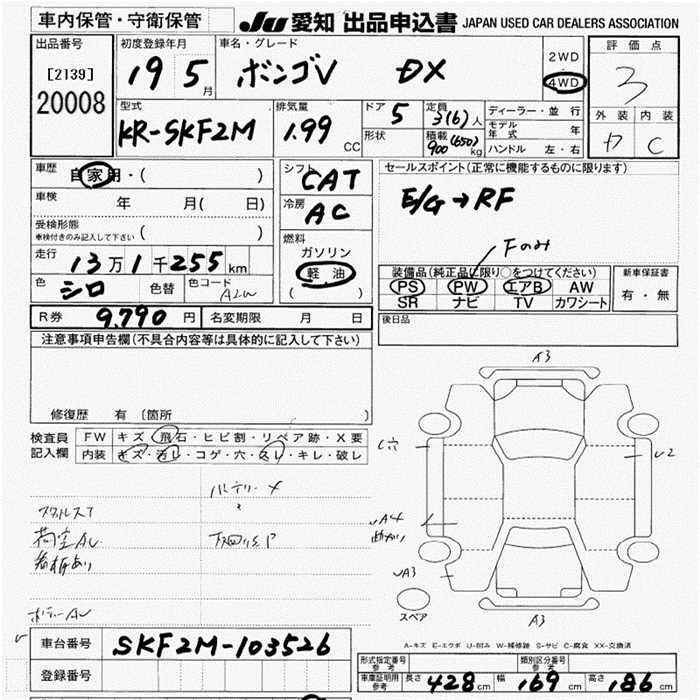 車内保管・守衛保管 JU 愛知 出品申込書 JAPAN USED CAR DEALERS ASSOCIATION
出品番号 初度登録年月 車名・グレード 2WD 評価点
[2139] 19 5月 ボンゴV DX 4WD 3
20008
型式 排気量 ドア 5 定員 3(6)人 ディーラー・並行 外装 内装
KR-SKF2M 1.99 CC 形状 積載 900(650)kg モデル年式 年 C
ハンドル 左・右
車歴 自家用・( ) シフト CAT セールスポイント(正常に機能するものに限ります)
車検 年 月( 日) 冷房 AC E/G→RF
受検形態 車検付きのみ記入して下さい ( ) 燃料 Fのみ
走行 13万1千255km ガソリン 装備品(純正品に限り○をつけてください) 新車保証書
色 シロ 色替 色コード A2W 軽油 ( ) PS PW エアB AW 有・無
SR ナビ TV カワシート
R券 9,790円 名変期限 月 日 後日品
注意事項申告欄(不具合内容等は具体的に記入して下さい)
A3
修復歴 有 (箇所 )
検査員 FW キズ・飛石・ヒビ割・リペア跡・X要
記入欄 内装 キズ・汚レ・コゲ・穴・スレ・キレ・破レ
U2
バッテリー×
A4
看板あり
A3
スペア
A3
ボデーAU
A-キズ E-エクボ U-凹み W-補修跡 S-サビ C-腐食 XX-交換済
車台番号 SKF2M-103526
登録番号
形式指定番号 参考 類別区分番号 参考
車庫証明用 参考 長さ 428cm 幅 169cm 高さ 186cm